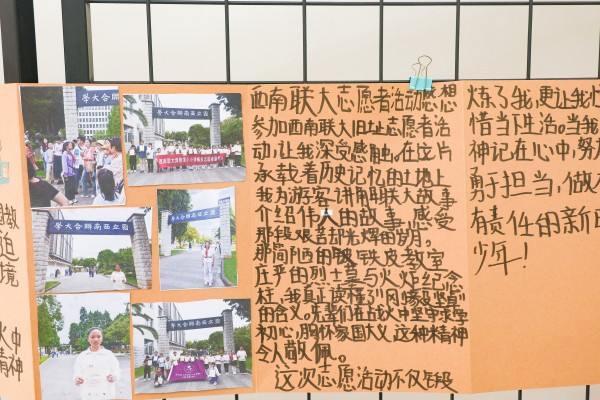 西南联大志愿者活动感想
参加西南联大旧址志愿者活
动,让我深受感触。在这片
承载着历史记忆的土地上
我为游客讲解联大故事
介绍伟人的故事,感受
那段艰苦却光辉的岁月。
那简陋的
铁皮教室
庄严的烈士墓与火炬纪念
柱,我真正读懂了“刚毅坚卓”
的含义。先辈们在战火中坚守求学
初心,胸怀家国大义,这种精神
令人敬佩。
这次志愿活动不仅
炼了我,更让我
惜当下生活。当我
神记在心中,努
勇于担当,做
有责任的新
少年!
迫
境
火中
精神
学大合聯南西立国
学大合聯南西立国
学大合聯南西立国